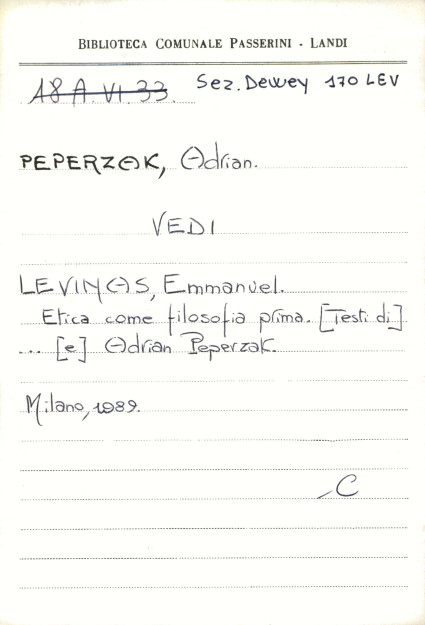 BIBLIOTECA COMUNALE PASSERINI - LANDI
18 A. VI. 33. Sez. Dewey 170 LEV
PEPERZAK, Adrian.
VEDI
LEVINAS, Emmanuel.
Etica come filosofia prima. [Testi di]
... [e] Adrian Peperzak.
Milano, 1989.
C